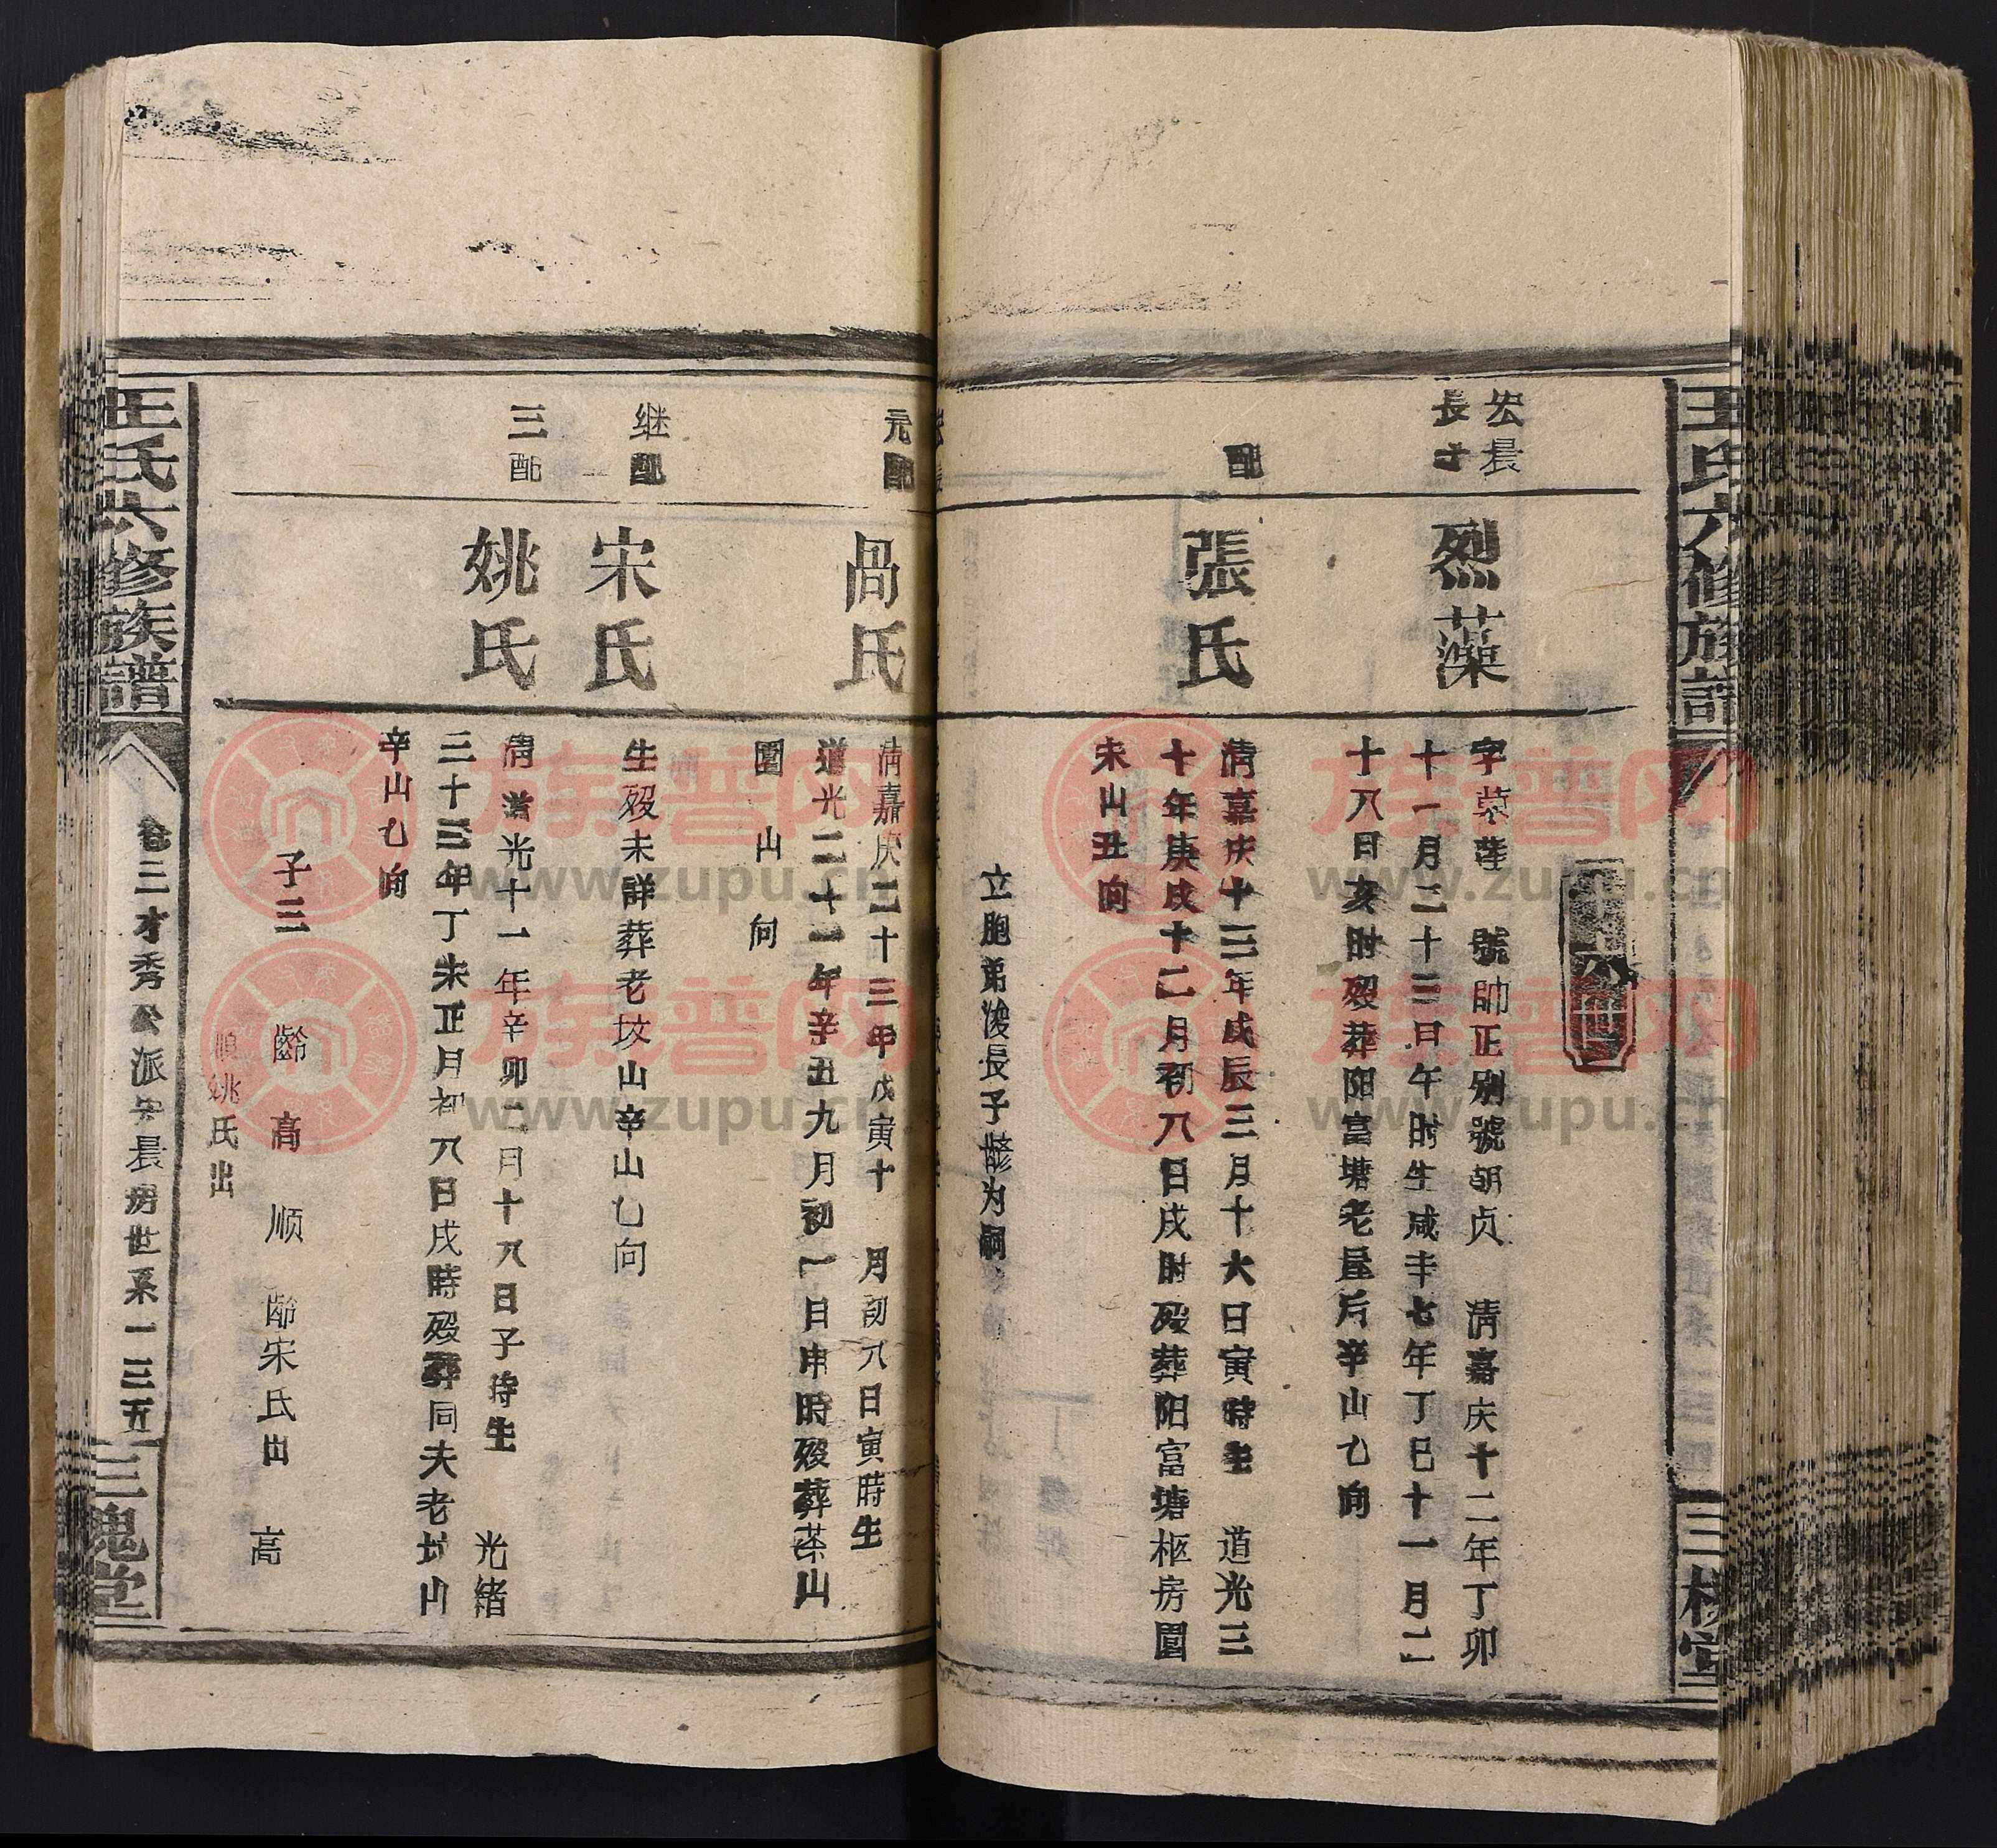 王氏六修族譜
三槐堂
宏晨
長子
烈藻
字慕 號帥正别號朝贞 清嘉庆十二年丁卯
十一月二十三日午时生咸丰七年丁巳十一月二
十八日亥时殁葬阳富塘老屋后辛山乙向
配
張氏
清嘉庆十三年戊辰三月十六日寅時生 道光三
十年庚戌十二月初八日戌时殁葬阳富塘柩房園
未山丑向
立胞弟浚長子 为嗣
元配
咼氏
清嘉庆二十三年戊寅十 月初八日寅時生
道光二十一年辛丑九月初一日申時殁葬茶山
園 山 向
继配
宋氏
生殁未詳葬老坟山辛山乙向
三配
姚氏
清道光十一年辛卯二月十八日子時生 光緒
三十三年丁未正月初八日戌時殁葬同夫老坟山
辛山乙向
子三 齡高 顺齡宋氏出 高
順姚氏出
王氏六修族譜
卷三才秀公派宏晨房世系一三五
三槐堂
族谱网
www.zupu.cn
族谱网
www.zupu.cn
族谱网
www.zupu.cn
族谱网
www.zupu.cn